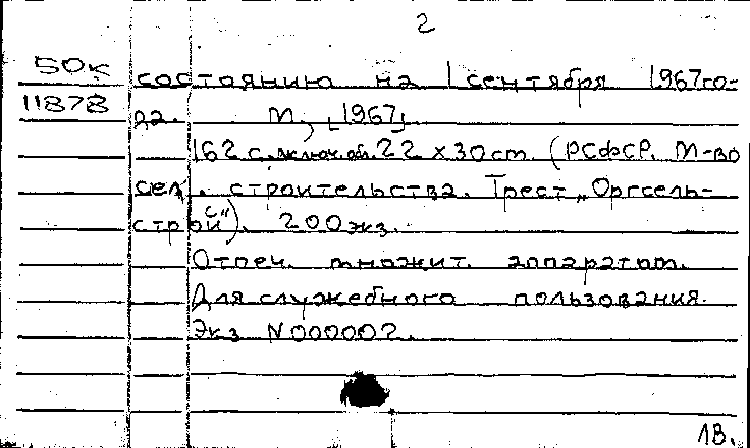 2
50к
состоянию на 1 сентября 1967 го-
11878
да. М., [1967].
162 с. включ. об. 22 х 30 см. (РСФСР. М-во
сел. строительства. Трест „Оргсель-
строй"). 200 экз.
Отпеч. множит. аппаратом.
Для служебного пользования.
Экз N000002.
18.